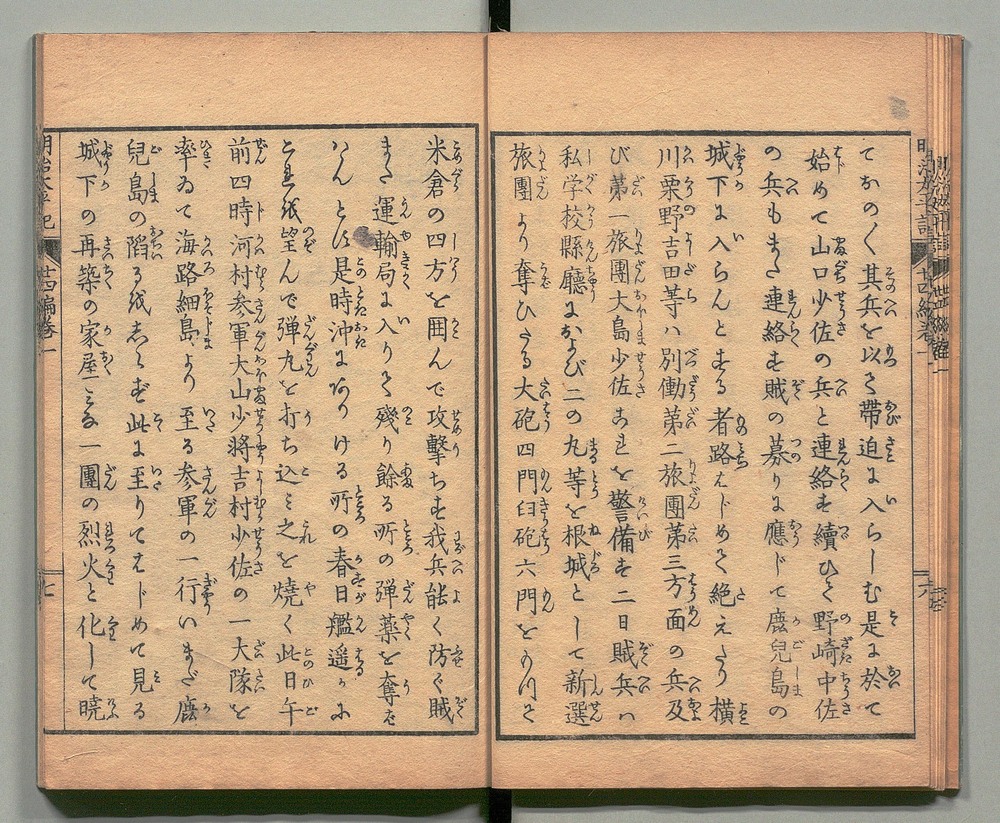 てかの〱其兵を以て帶迫に入らしむ是に於て
始めて山口少佐の兵と連絡を續ひて野崎中佐
の兵もまた連絡を賊の募りに應じて鹿兒島の
城下に入らんとする者路はじめて絶えたり横
川粟野吉田等ハ別働第二旅團第三方面の兵及
び第一旅團大島少佐これを警備す二日賊兵ハ
私学校縣廳および二の丸等を根城として新選
旅團より奪ひたる大砲四門臼砲六門をうつて
米倉の四方を囲んで攻撃す我兵能く防ぐ賊
また運輸局に入りて殘り餘る所の弾薬を奪は
はんとす是時沖にありける所の春日艦遥かに
これを望んで弾丸を打ち込ミ之を燒く此日午
前四時河村参軍大山少將吉村少佐の一大隊を
率ゐて海路細島より至る参軍の一行いまだ鹿
兒島の滔るをしらず此に至りてはじめて見る
城下の再築の家屋ミな一團の烈火と化して暁
明治太平記 廿四編巻一 六
明治太平記 廿四編巻一 七